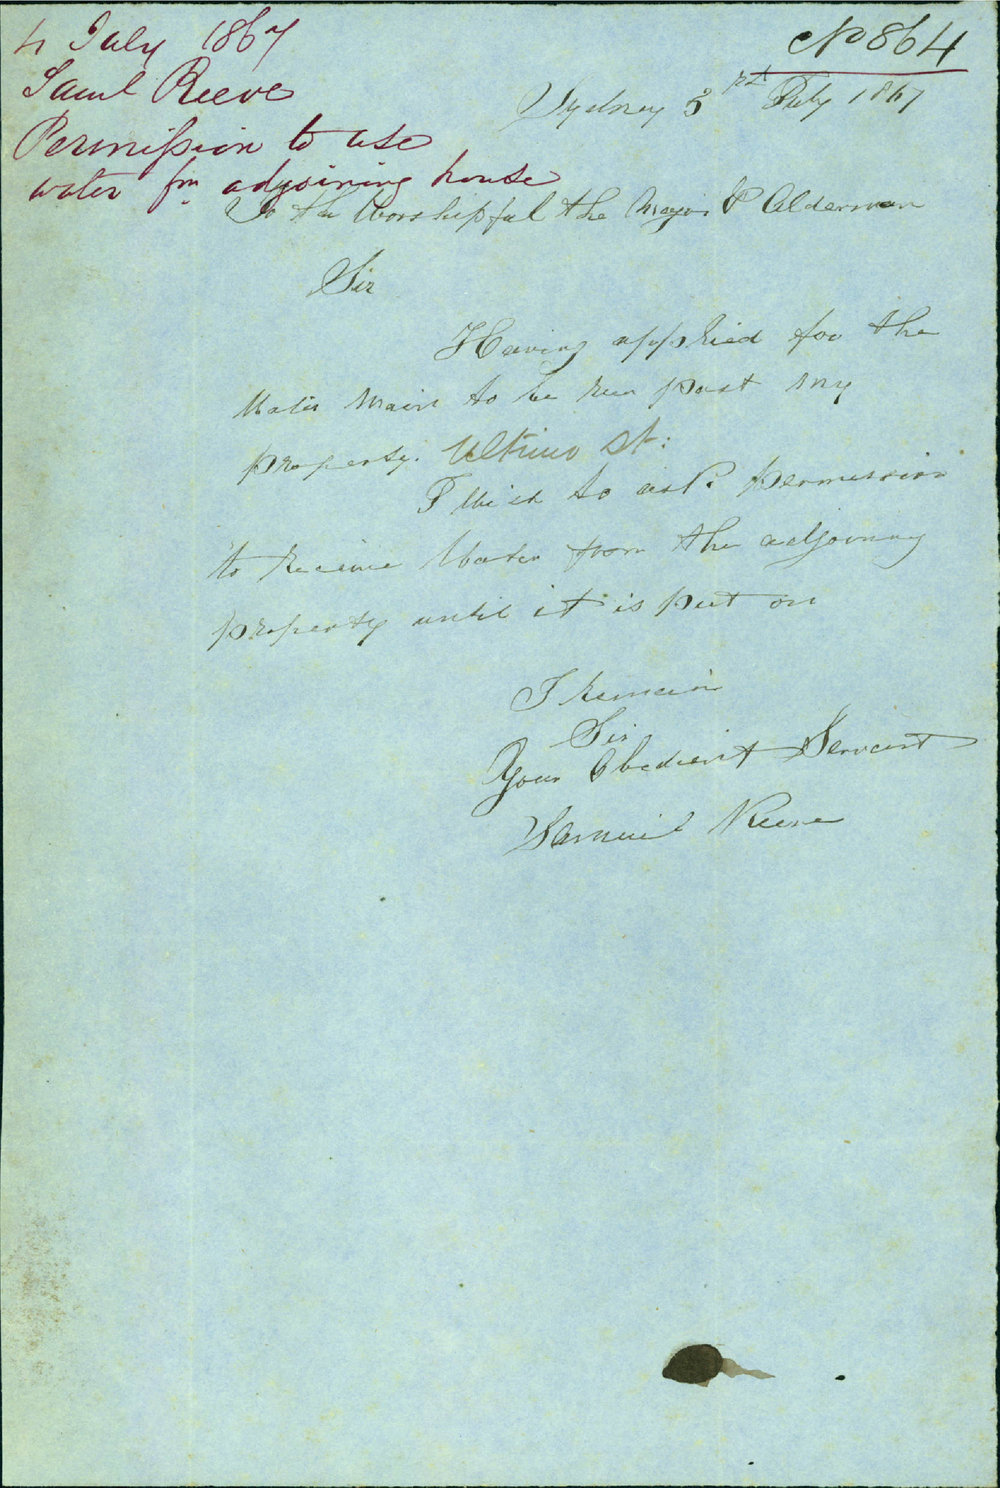 4 July 1867
Saml Reeve
Permission to use
water fm adjoining house
No 864
Sydney 3rd July 1867
To the Worshipful the Mayor & Alderman
Sir
Having applied for the
Water Main to be run past my
property. Ultimo St:
I wish to ask permission
to receive Water from the adjoining
property until it is put on
I Remain
Sir
Your Obedient Servant
Samuel Reeve